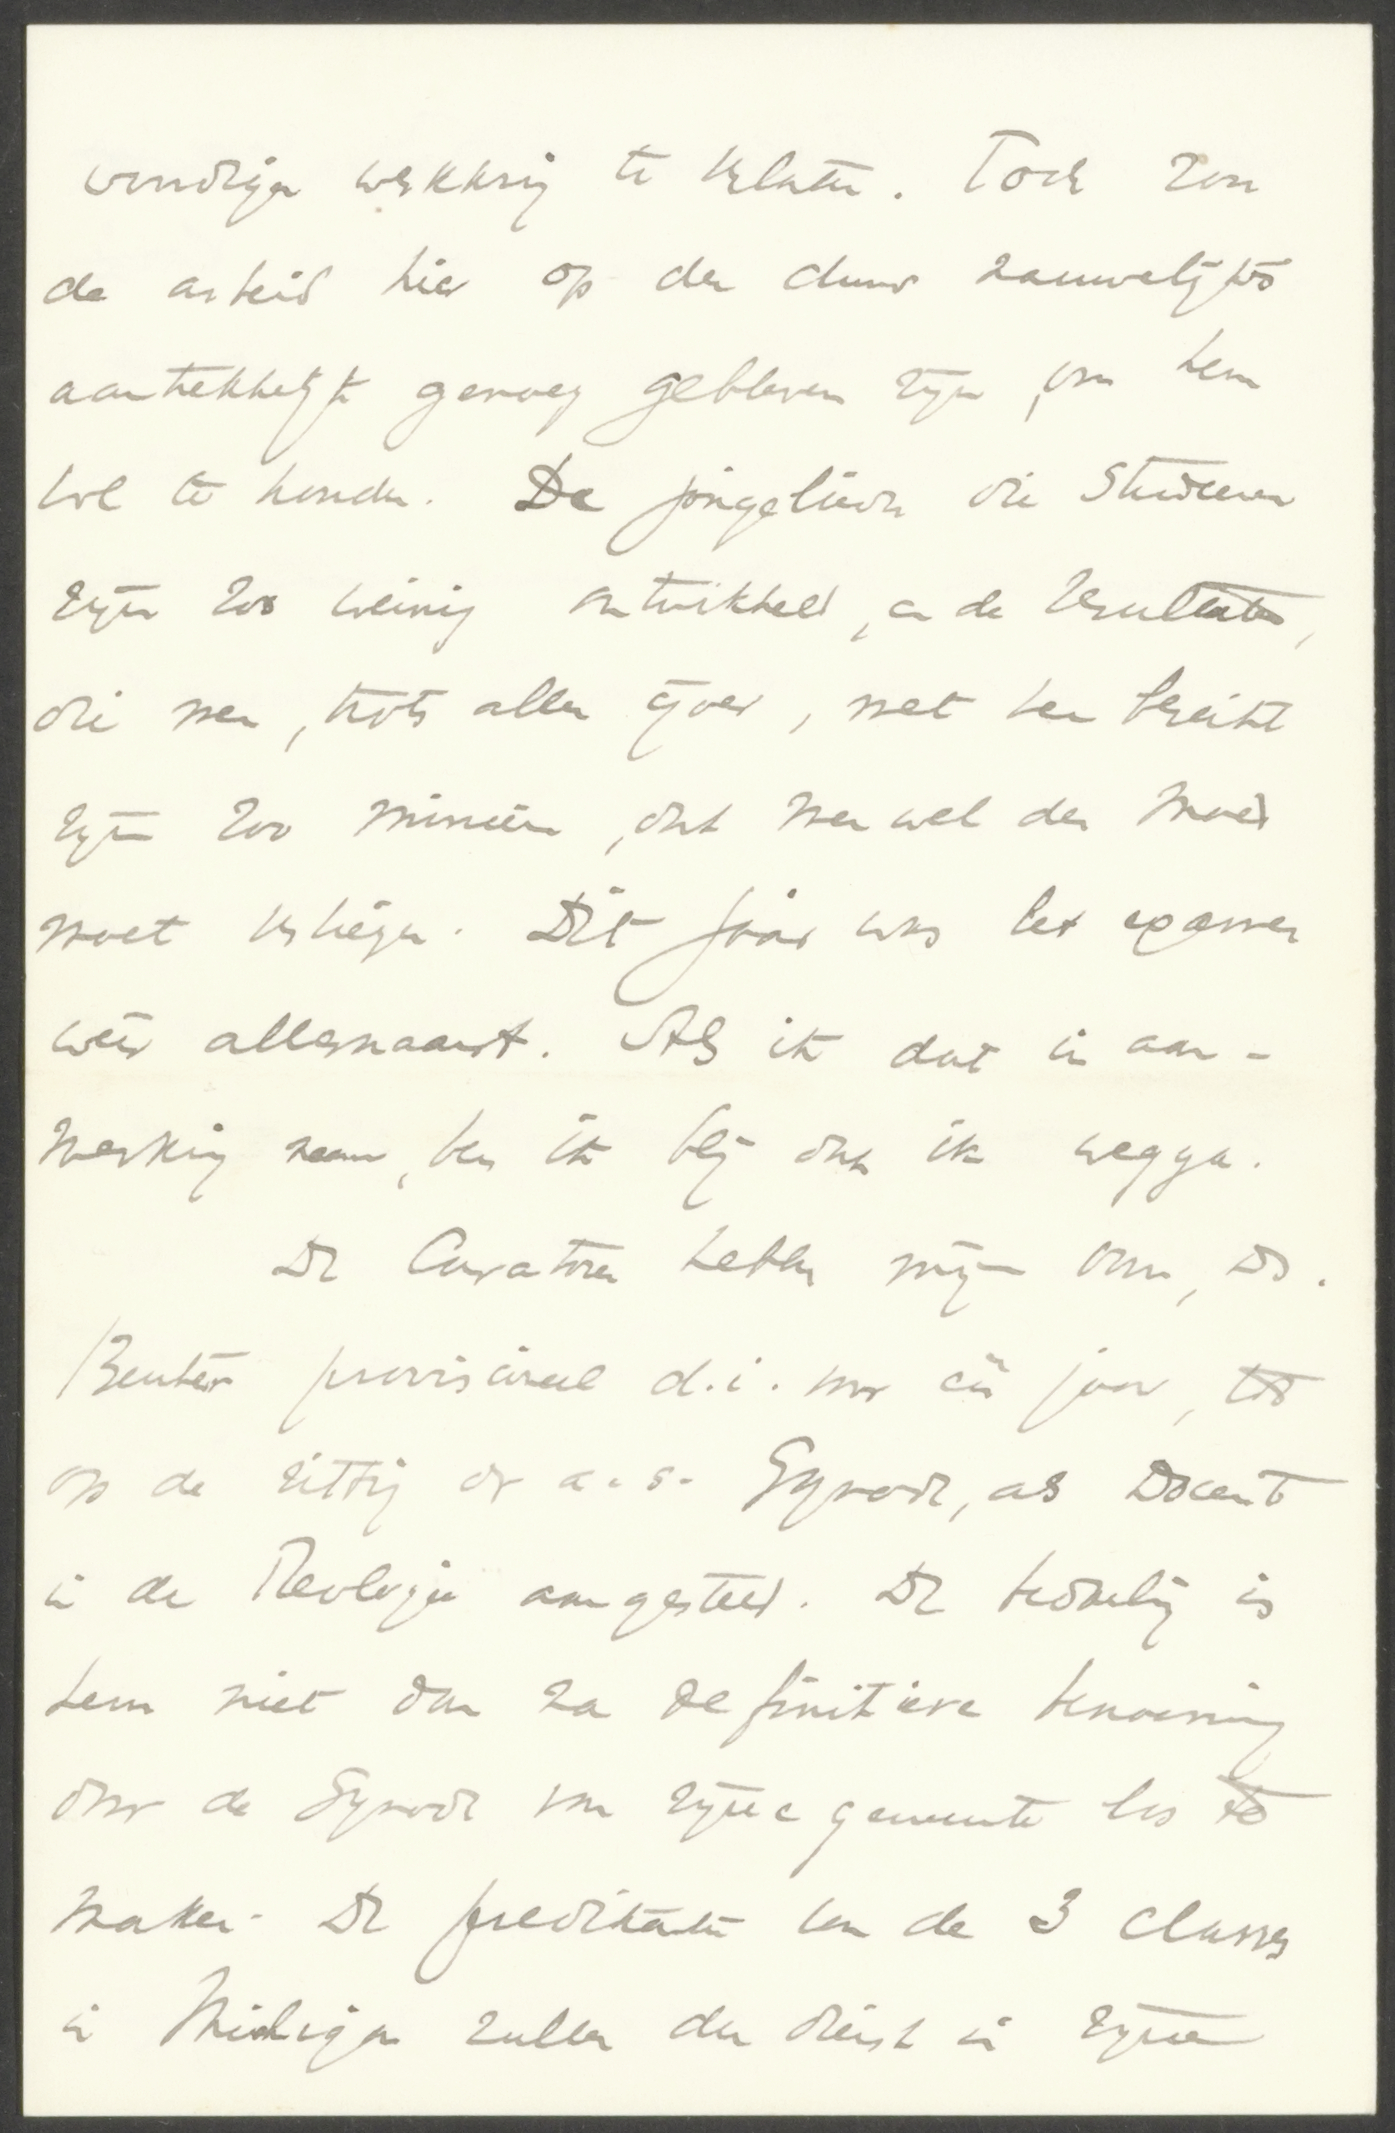 werkkring te verlaten. Toch zou
de arbeid hier op den duur nauwelijks
aantrekkelijk genoeg gebleven zijn, om hem
vol te houden. De jongelieden die studeeren
zijn zoo weinig ontwikkeld, en de resultaten,
die men, trots allen ijver, met hen bereikt
zijn zoo miniem, dat men wel den moed
moet verliezen. Dit jaar was het examen
weer allernaarst. Als ik dat in aan-
merking neem, ben ik blij dat ik wegga.
De Curatoren hebben mijn Oom, Ds.
Beuker provisioneel d.i. voor één jaar, tot
op de zitting der a.s. Synode, als Docent
in de Theologie aangesteld. De bedoeling is
hem niet dan na definitieve benoeming
door de Synode van zijne gemeente los te
maken. De predikanten van de 3 classes
in Michigan zullen den dienst in zijne